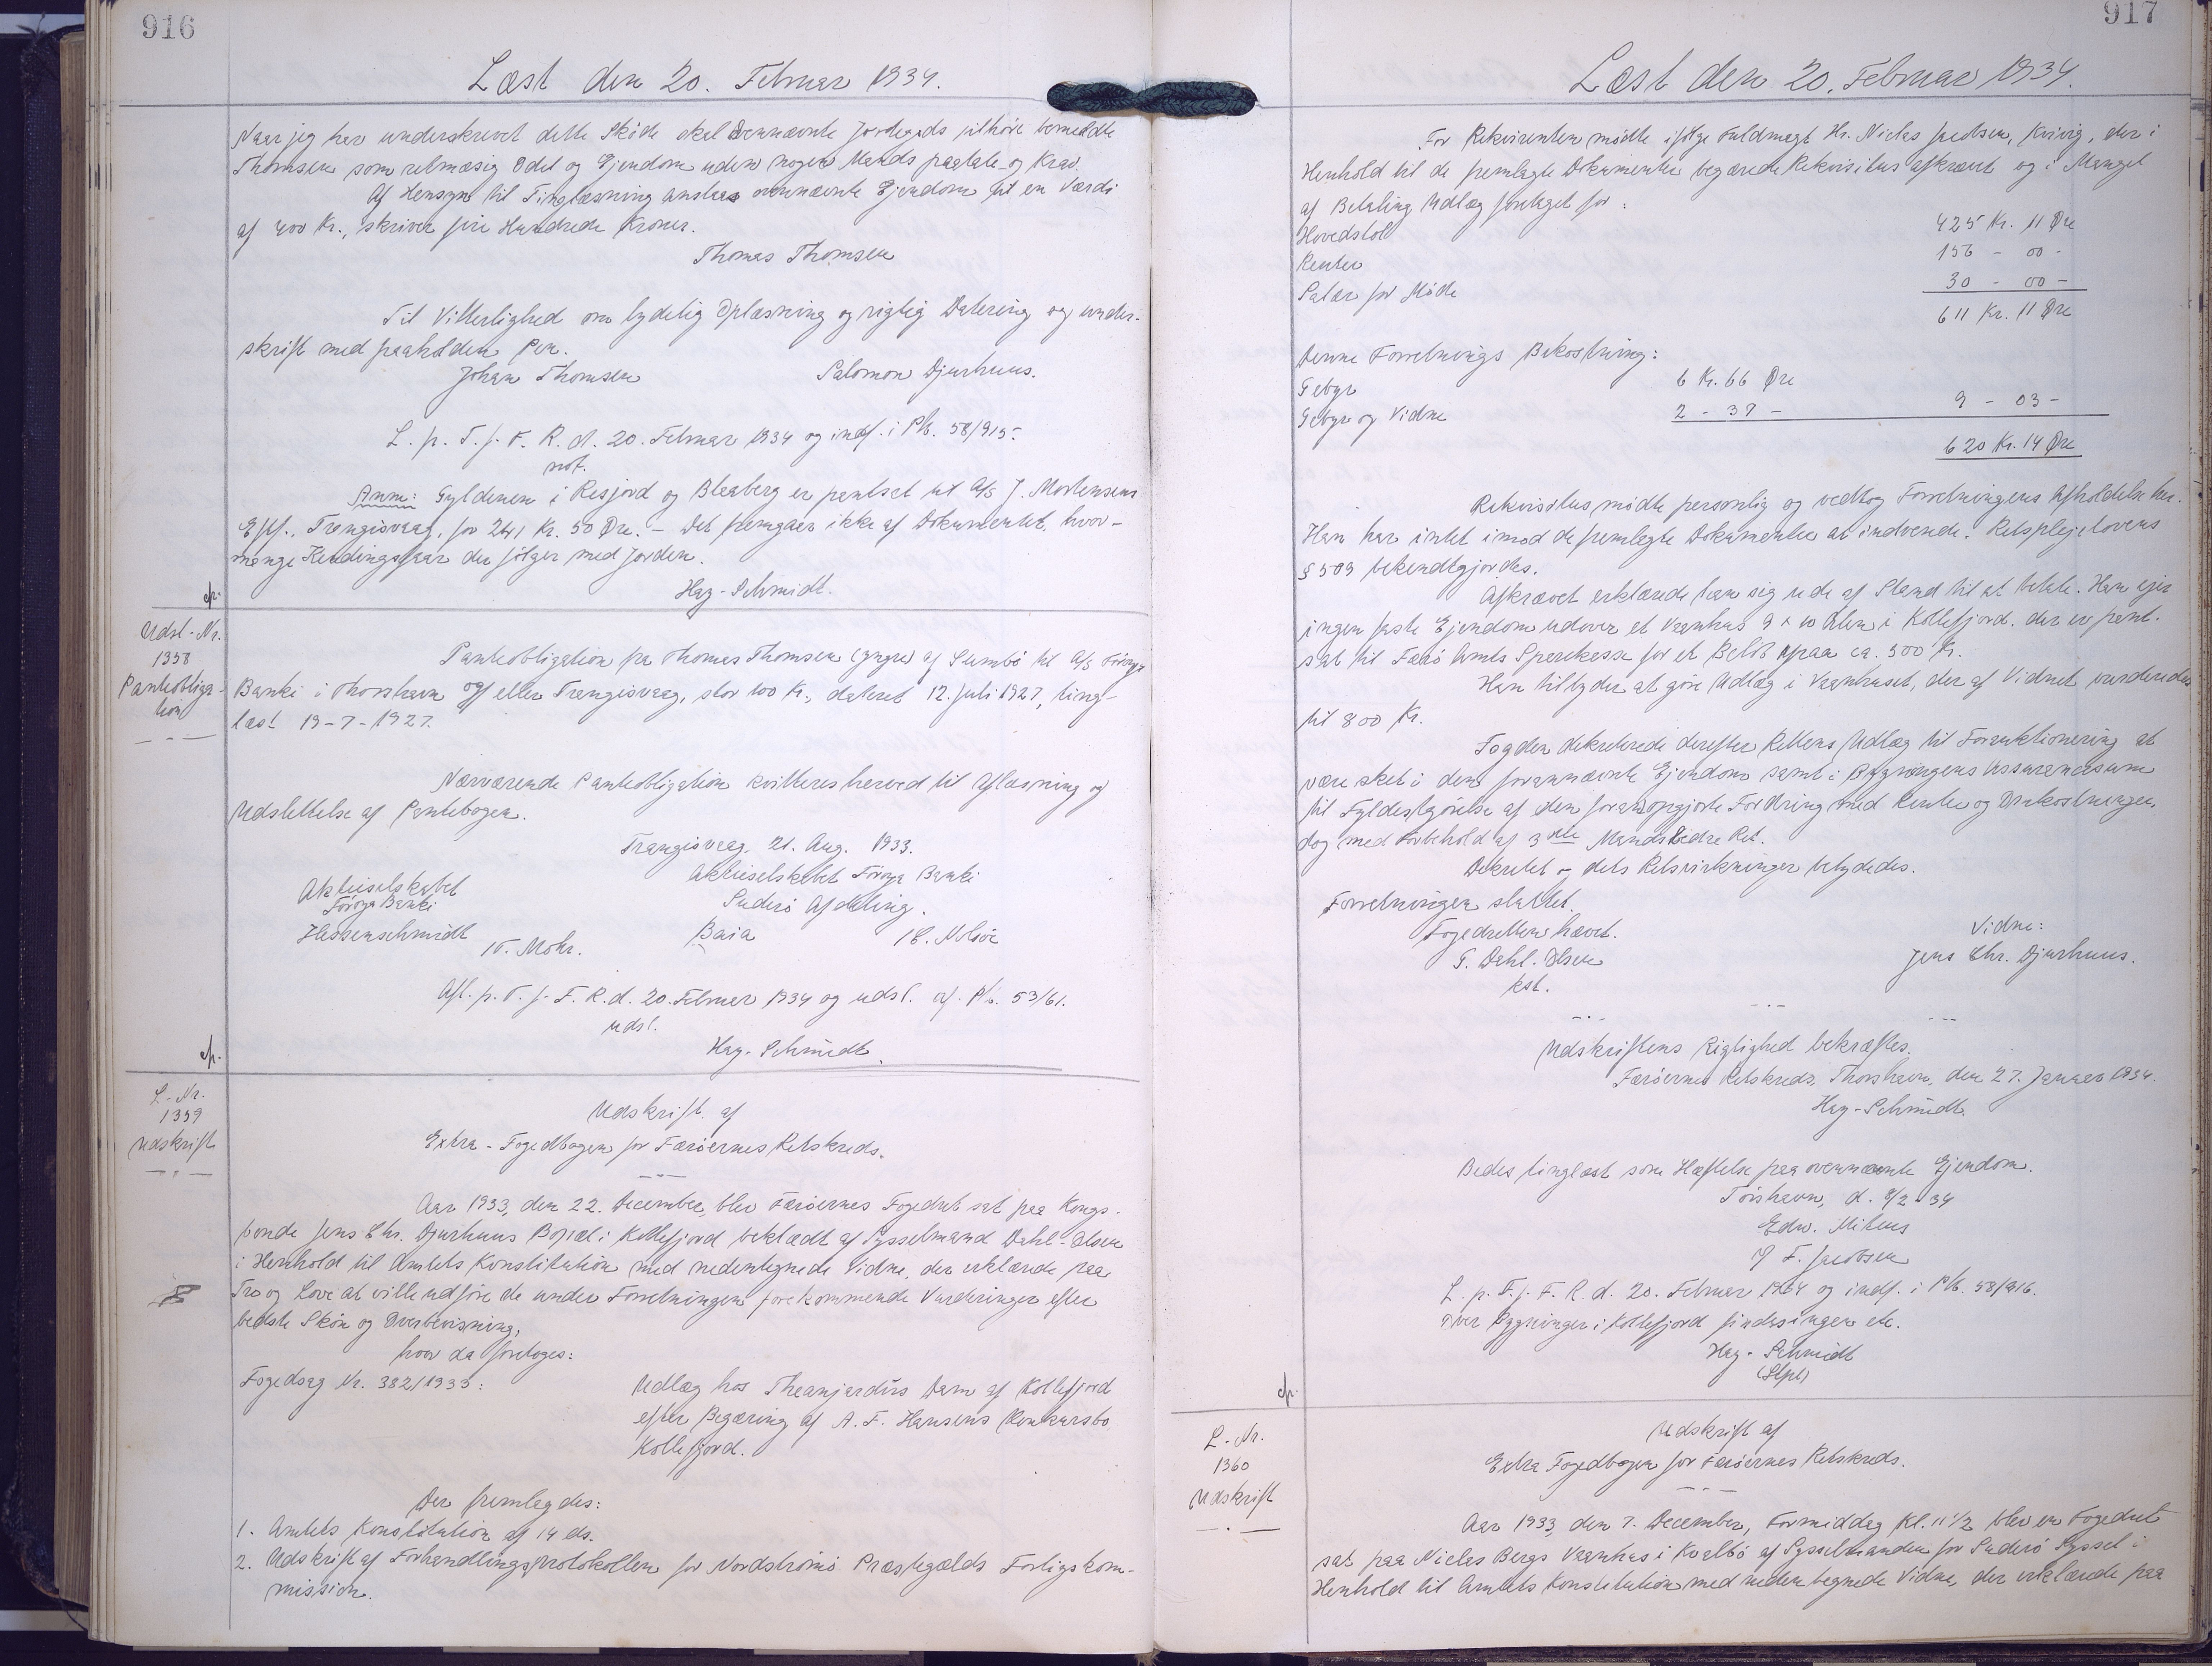 916
Læst den 20. Februar 1934.
Naar jeg har underskrevet dette Skøde skal ovennævnte Jordegods tilhøre bemeldte
Thomsen som retmæsig Odel og Ejendom uden nogen Mands paatale og Krav.
Af Hensyn til Tinglæsning anslaas ovennævnte Ejendom til en Værdi
af 400 Kr., skriver fire Hundrede Kroner.
Thomas Thomsen
Til Vitterlighed om lydelig Oplæsning og rigtig Datering og under-
skrift med paaholden Pen.
Johan Thomsen Salomon Djurhuus.
L. p. T. f. F. R. d. 20. Februar 1934 og indf. i Pb. 58/915.
not.
Anm: Gyldenen i Resjord og Bleaberg er pantsat til A/S J. Mortensens
Eftf., Trangisvaag, for 241 Kr. 50 Øre. – Det fremgaar ikke af Dokumentet, hvor-
mange Kendingsfaar der følger med Jorden.
Hag-Schmidt.
cfr.
Udsl-Nr.
1358
Panteobliga-
tion
Panteobligation fra Thomas Thomsen (yngre) af Sumbø til A/S Föroya
Banki i Thorshavn og/ eller Trangisvaag, stor 100 Kr., dateret 12. Juli 1927, ting-
læst 19-7-1927.
Nærværende Panteobligation kvitteres herved til Aflæsning og
Udslettelse af Pantebogen.
Trangisvaag, 21. Aug. 1933.
Aktieselskabet Föroya Banki
Suderø Afdeling.
Aktieselskabet
Föroya Banki
Hassenschmidt
V. Mohr. Baia E. Nolsøe
Afl. p. T. f. F. R. d. 20. Februar 1934 og udsl. af Pb. 53/61.
udsl.
Hag-Schmidt.
cfr.
L-Nr.
1359
Udskrift
Udskrift af
Extra-Fogedbogen for Færøernes Retskreds.
Aar 1933, den 22. December, blev Færøernes Fogedret sat paa Kongs-
bonde Jens Chr. Djurhuus Bopæl i Kollefjord beklædt af Sysselmand Dahl-Olsen
i Henhold til Amtets Konstitution med nedentegnede Vidne, der erklærede paa
Tro og Love at ville udføre de under Forretningen forekommende Vurderinger efter
bedste Skøn og Overbevisning,
hvor da foretoges:
Fogedsag Nr. 382/1933: Udlæg hos Theanjardus Dam af Kollefjord
efter Begæring af A. F. Hansens Konkursbo,
Kollefjord.
Der fremlagdes:
1. Amtets Konstitution af 14 ds.
2. Udskrift af Forhandlingsprotokollen for Nordstrømø Præstegælds Forligskom-
mission.
917
Læst den 20. Februar 1934.
For Rekvirenten mødte ifølge Fuldmagt Hr. Niclas Jacobsen, Kvivig, der i
Henhold til de fremlagte Dokumenter begærede Rekvisitus afkrævet og i Mangel
af Betaling Udlæg foretaget for:
Hovedstol 425 Kr. 11 Øre
Renter 156 - 00 -
Salær for Møde 30 - 00 -
611 Kr. 11 Øre
Denne Forretnings Bekostning:
Gebyr 6 Kr. 66 Øre
Gebyr og Vidne 2 - 37 - 9 - 03 -
620 Kr. 14 Øre
Rekvisitus mødte personlig og vedtog Forretningens Afholdelse her.
Han har intet imod de fremlagte Dokumenter at indvende. Retsplejelovens
§ 509 bekendtgjordes.
Afkrævet erklærede han sig ude af Stand til at betale. Han ejer
ingen faste Ejendom udover et Vaanhus 9 x 10 Alen i Kollefjord, der er pant-
sat til Færø Amts Sparekasse for et Beløb paa ca. 500 Kr.
Han tilbyder at gøre Udlæg i Vaanhuset, der af Vidnet vurderedes
til 800 Kr.
Fogden dekreterede derefter Rettens Udlæg til Forauktionering at
være sket i den forannævnte Ejendom samt i Bygningens Assurancesum
til Fyldestgørelse af den foranopgjorte Fordring med Renter og Omkostninger,
dog med Forbehold af 3die Mands bedre Ret.
Dekretet og dets Retsvirkninger betydedes.
Forretningen sluttet.
Fogedretten hævet. Vidne:
G. Dahl-Olsen Jens Chr. Djurhuus.
kst.
Udskriftens Rigtighed bekræftes.
Færøernes Retskreds, Thorshavn, den 27. Januar 1934.
Hag-Schmidt.
Bedes tinglæst som Hæftelse paa ovennævnte Ejendom.
Tórshavn, d. 8/2 - 34
Edw. Mitens
/ F. Jacobsen
L. p. T. f. F. R. d. 20. Februar 1934 og indf. i Pb. 58/916.
Over Bygninger i Kollefjord findes ingen
Hag-Schmidt
cfr.
L-Nr.
1360
Udskrift
Udskrift af
Extra Fogedbogen for Færøernes Retskreds.
Aar 1933, den 7. December, Formiddag Kl. 11 1/2 blev en Fogedret
sat paa Niclas Bergs Vaanhus i Kvalbø af Sysselmanden for Suderø Syssel i
Henhold til Amtets Konstitution med nedentegnede Vidne, der erklærede paa